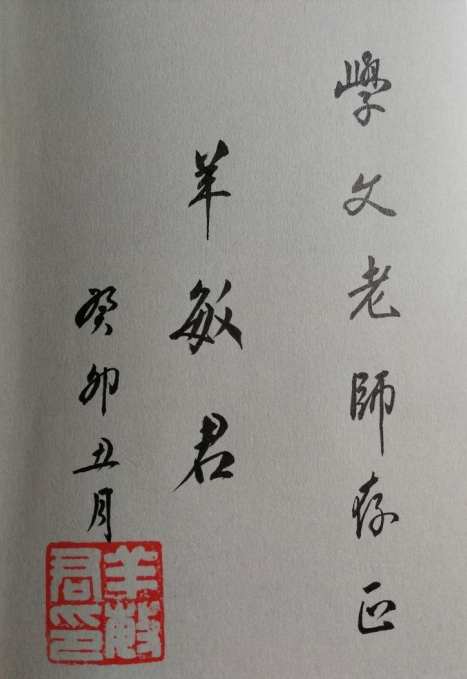 學文老師存正
羊敏君
癸卯丑月
羊敏君印